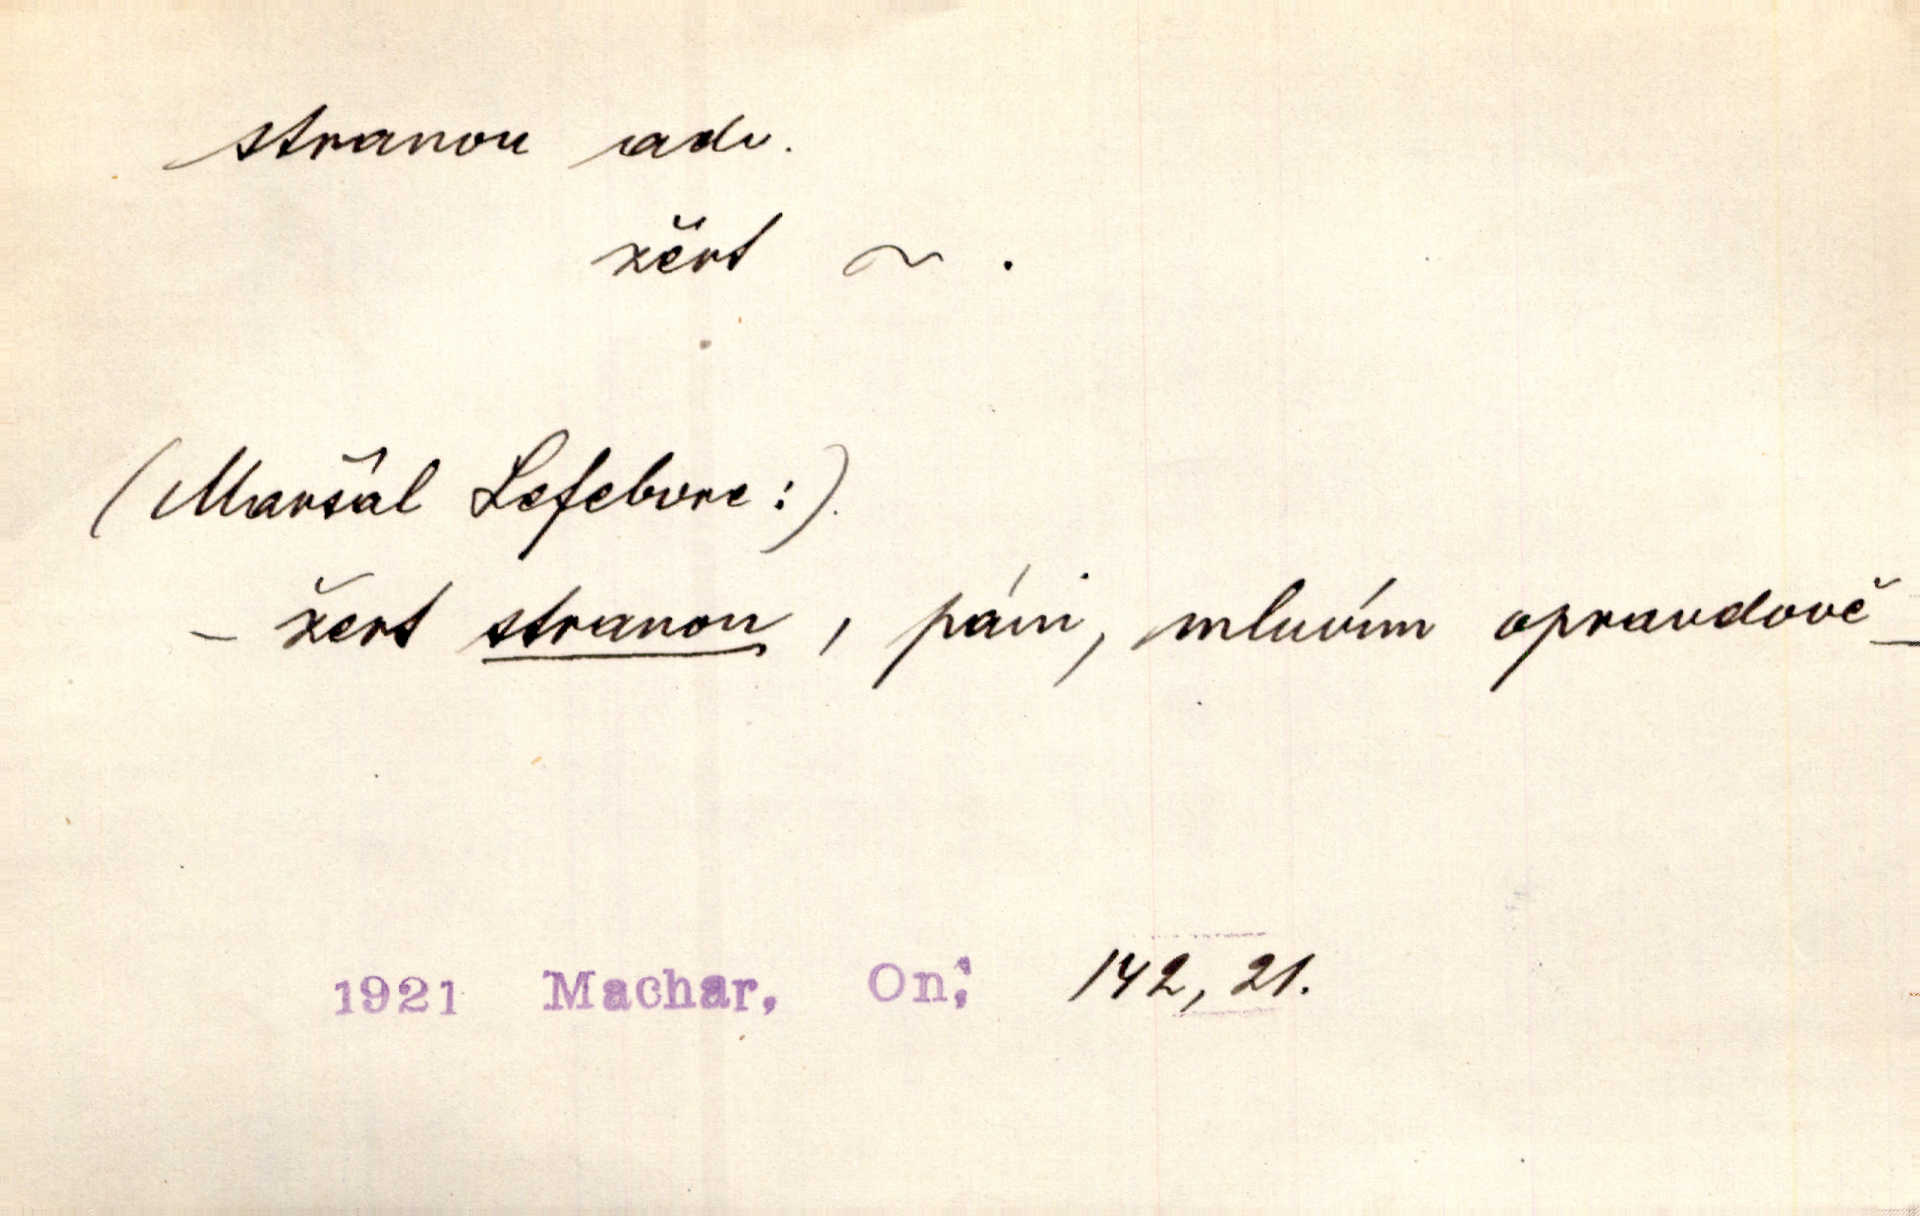 stranou adv.
žert ~ .
(Maršál Lefebvre:).
– žert stranou, páni, mluvím opravdově –
1921 Machar, On; 142, 21.